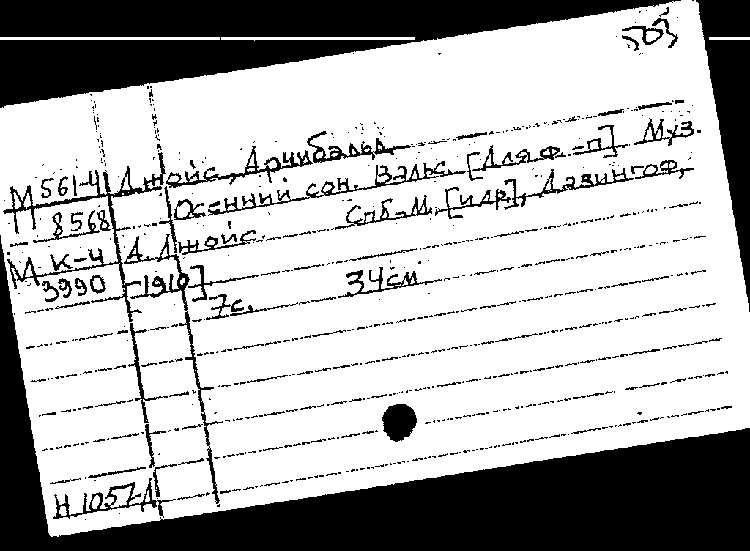 503
М 561-4 Джойс, Арчибальд.
П 8568 Осенний сон. Вальс. [Для ф.-п] Муз.
М К-4 А. Джойс. Спб-М, [и др], Дазингоф,
3990 [1910]
7с. 34см
Н 1057-Д